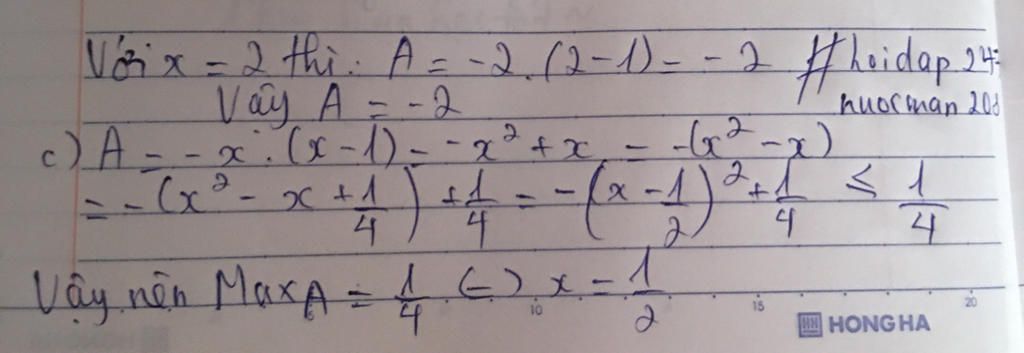 Với x = 2 thì: A = -2.(2-1) = -2 #hoidap 247
Vậy A = -2 nuocman 208
c) A = -x.(x-1) = -x² + x = -(x² - x)
= -(x² - x + 1/4) + 1/4 = -(x - 1/2)² + 1/4 ≤ 1/4
Vậy nên Max A = 1/4 (=) x = 1/2
10 15 20
HH HONG HA